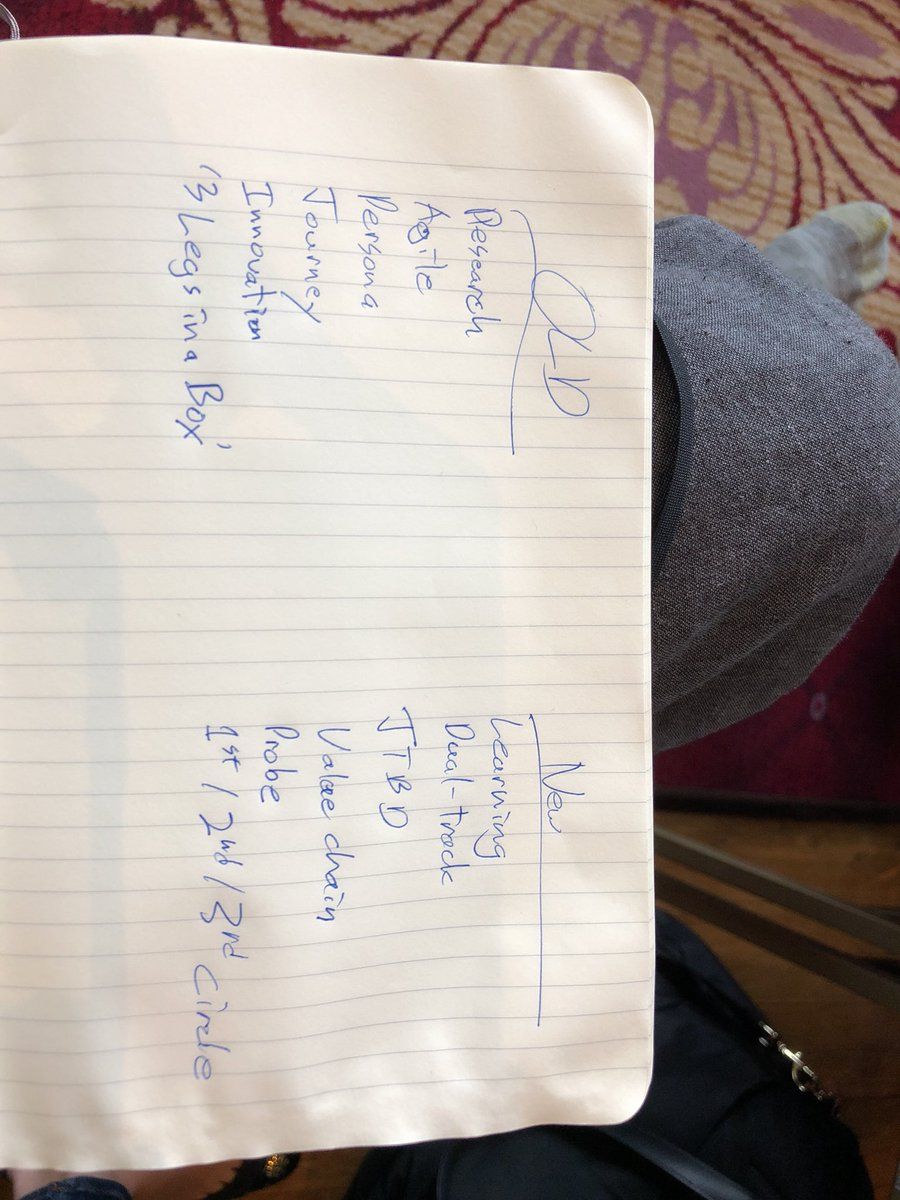 OLD
Research
Agile
Persona
Journey
Innovation
'3 Legs in a Box'
New
Learning
Dual-track
JTBD
Value chain
Probe
1st / 2nd / 3rd circle